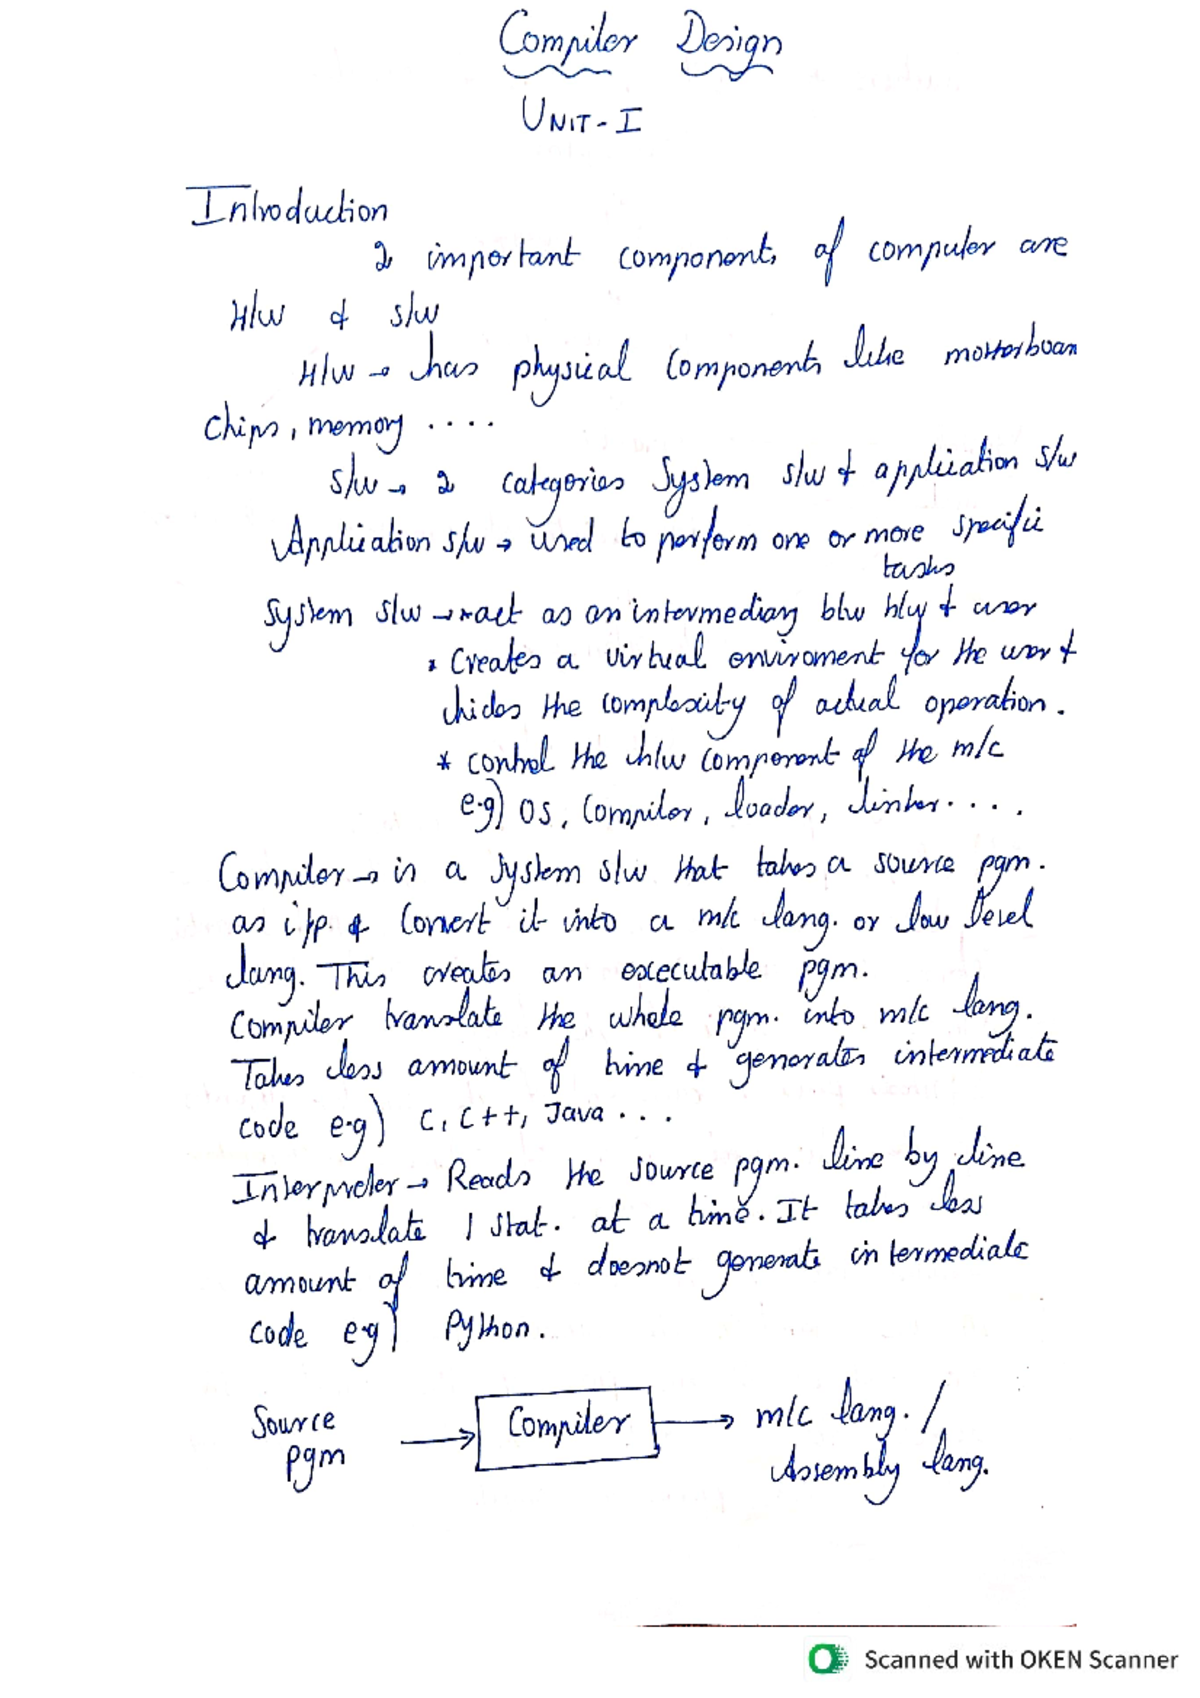 Compiler Design
UNIT-I
Introduction
2 important components of computer are
H/w & s/w
H/w → has physical components like
chips, memory ....
s/w → 2 categories System s/w & application s/w
Application s/w → used to perform one or more specific
tasks
System s/w → * act as an intermediary b/w h/w & user
* Creates a virtual enviroment for the user &
hides the complexity of actual operation.
* control the h/w component of the m/c
e.g) OS, Compiler, loader, linker....
Compiler → is a system s/w that takes a source pgm.
as i/p. & Convert it into a m/c lang. or low level
lang. This creates an executable pgm.
Compiler translate the whole pgm. into m/c lang.
Takes less amount of time & generates intermediate
code e.g) C, C++, Java ...
Interpreter → Reads the source pgm. line by line
& translate 1 stat. at a time. It takes less
amount of time & doesnot generate intermediate
code e.g) Python.
Source
pgm
Compiler
m/c lang. /
Assembly lang.
Scanned with OKEN Scanner